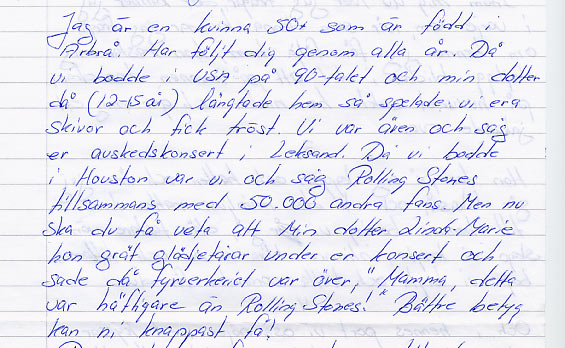 Jag är en kvinna 50+ som är född i
Arbrå. Har följt dig genom alla år. Då
vi bodde i USA på 90-talet och min dotter
då (12-15 år) längtade hem så spelade vi era
skivor och fick tröst. Vi var även och såg
er avskedskonsert i Leksand. Då vi bodde
i Houston var vi och såg Rolling Stones
tillsammans med 50.000 andra fans. Men nu
ska du få veta att Min dotter Linda-Marie
hon grät glädjetårar under er konsert och
sade då fyrverkeriet var över, "Mamma, detta
var häftigare än Rolling Stones!" Bättre betyg
kan ni knappast få!